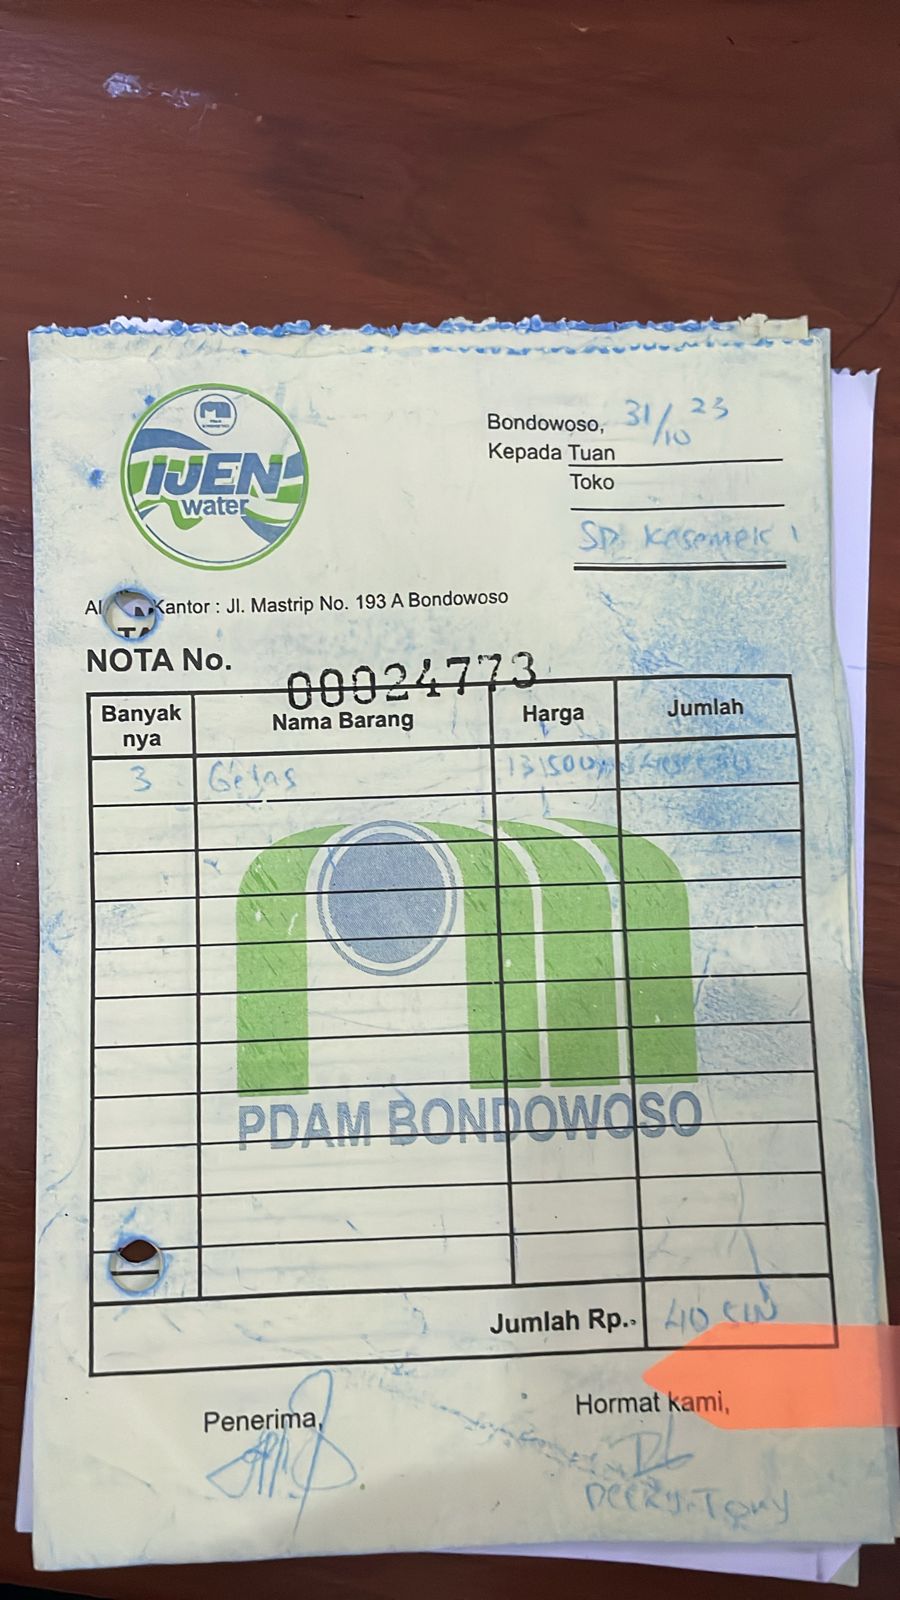 IJEN
water
Bondowoso, 31/10 23
Kepada Tuan
Toko
SD Kesemek 1
Kantor : Jl. Mastrip No. 193 A Bondowoso
NOTA No. 00024773
Banyak nya Nama Barang Harga Jumlah
3 Gelas 13.500
PDAM BONDOWOSO
Jumlah Rp.. 40
Penerima,
Hormat kami,